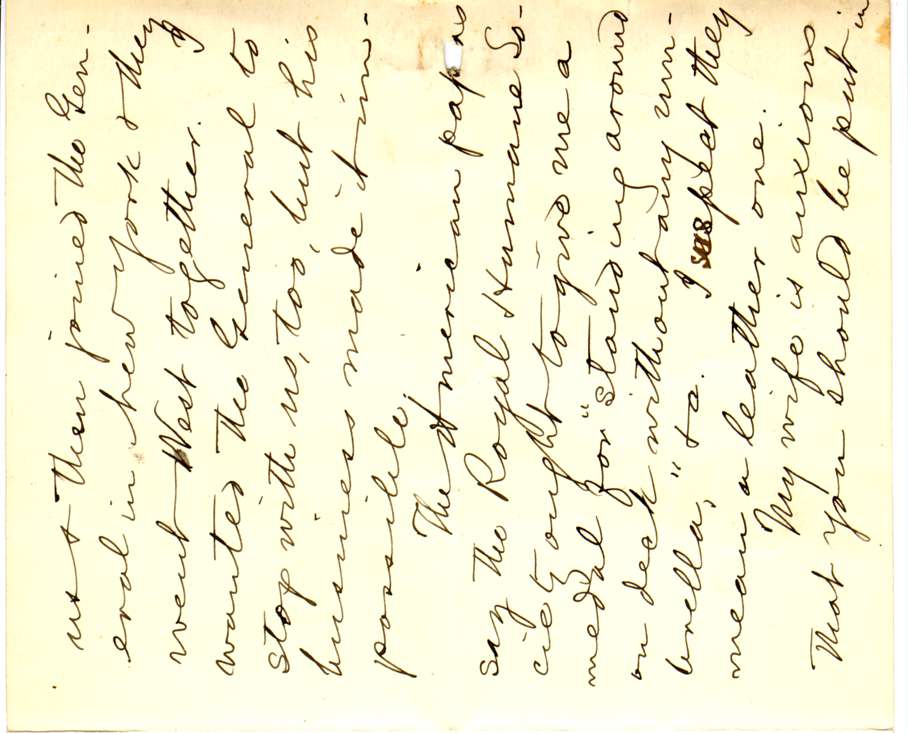 us & then joined the Gen-
eral in New York & they
went West together. I
wanted the General to
stop with us, too, but his
business made it im-
possible.
The American papers
say the Royal Humane So-
ciety ought to give me a
medal for "standing around
on deck without any um-
brella," &a. I suspect they
mean a leather one.
My wife is anxious
that you should be put in